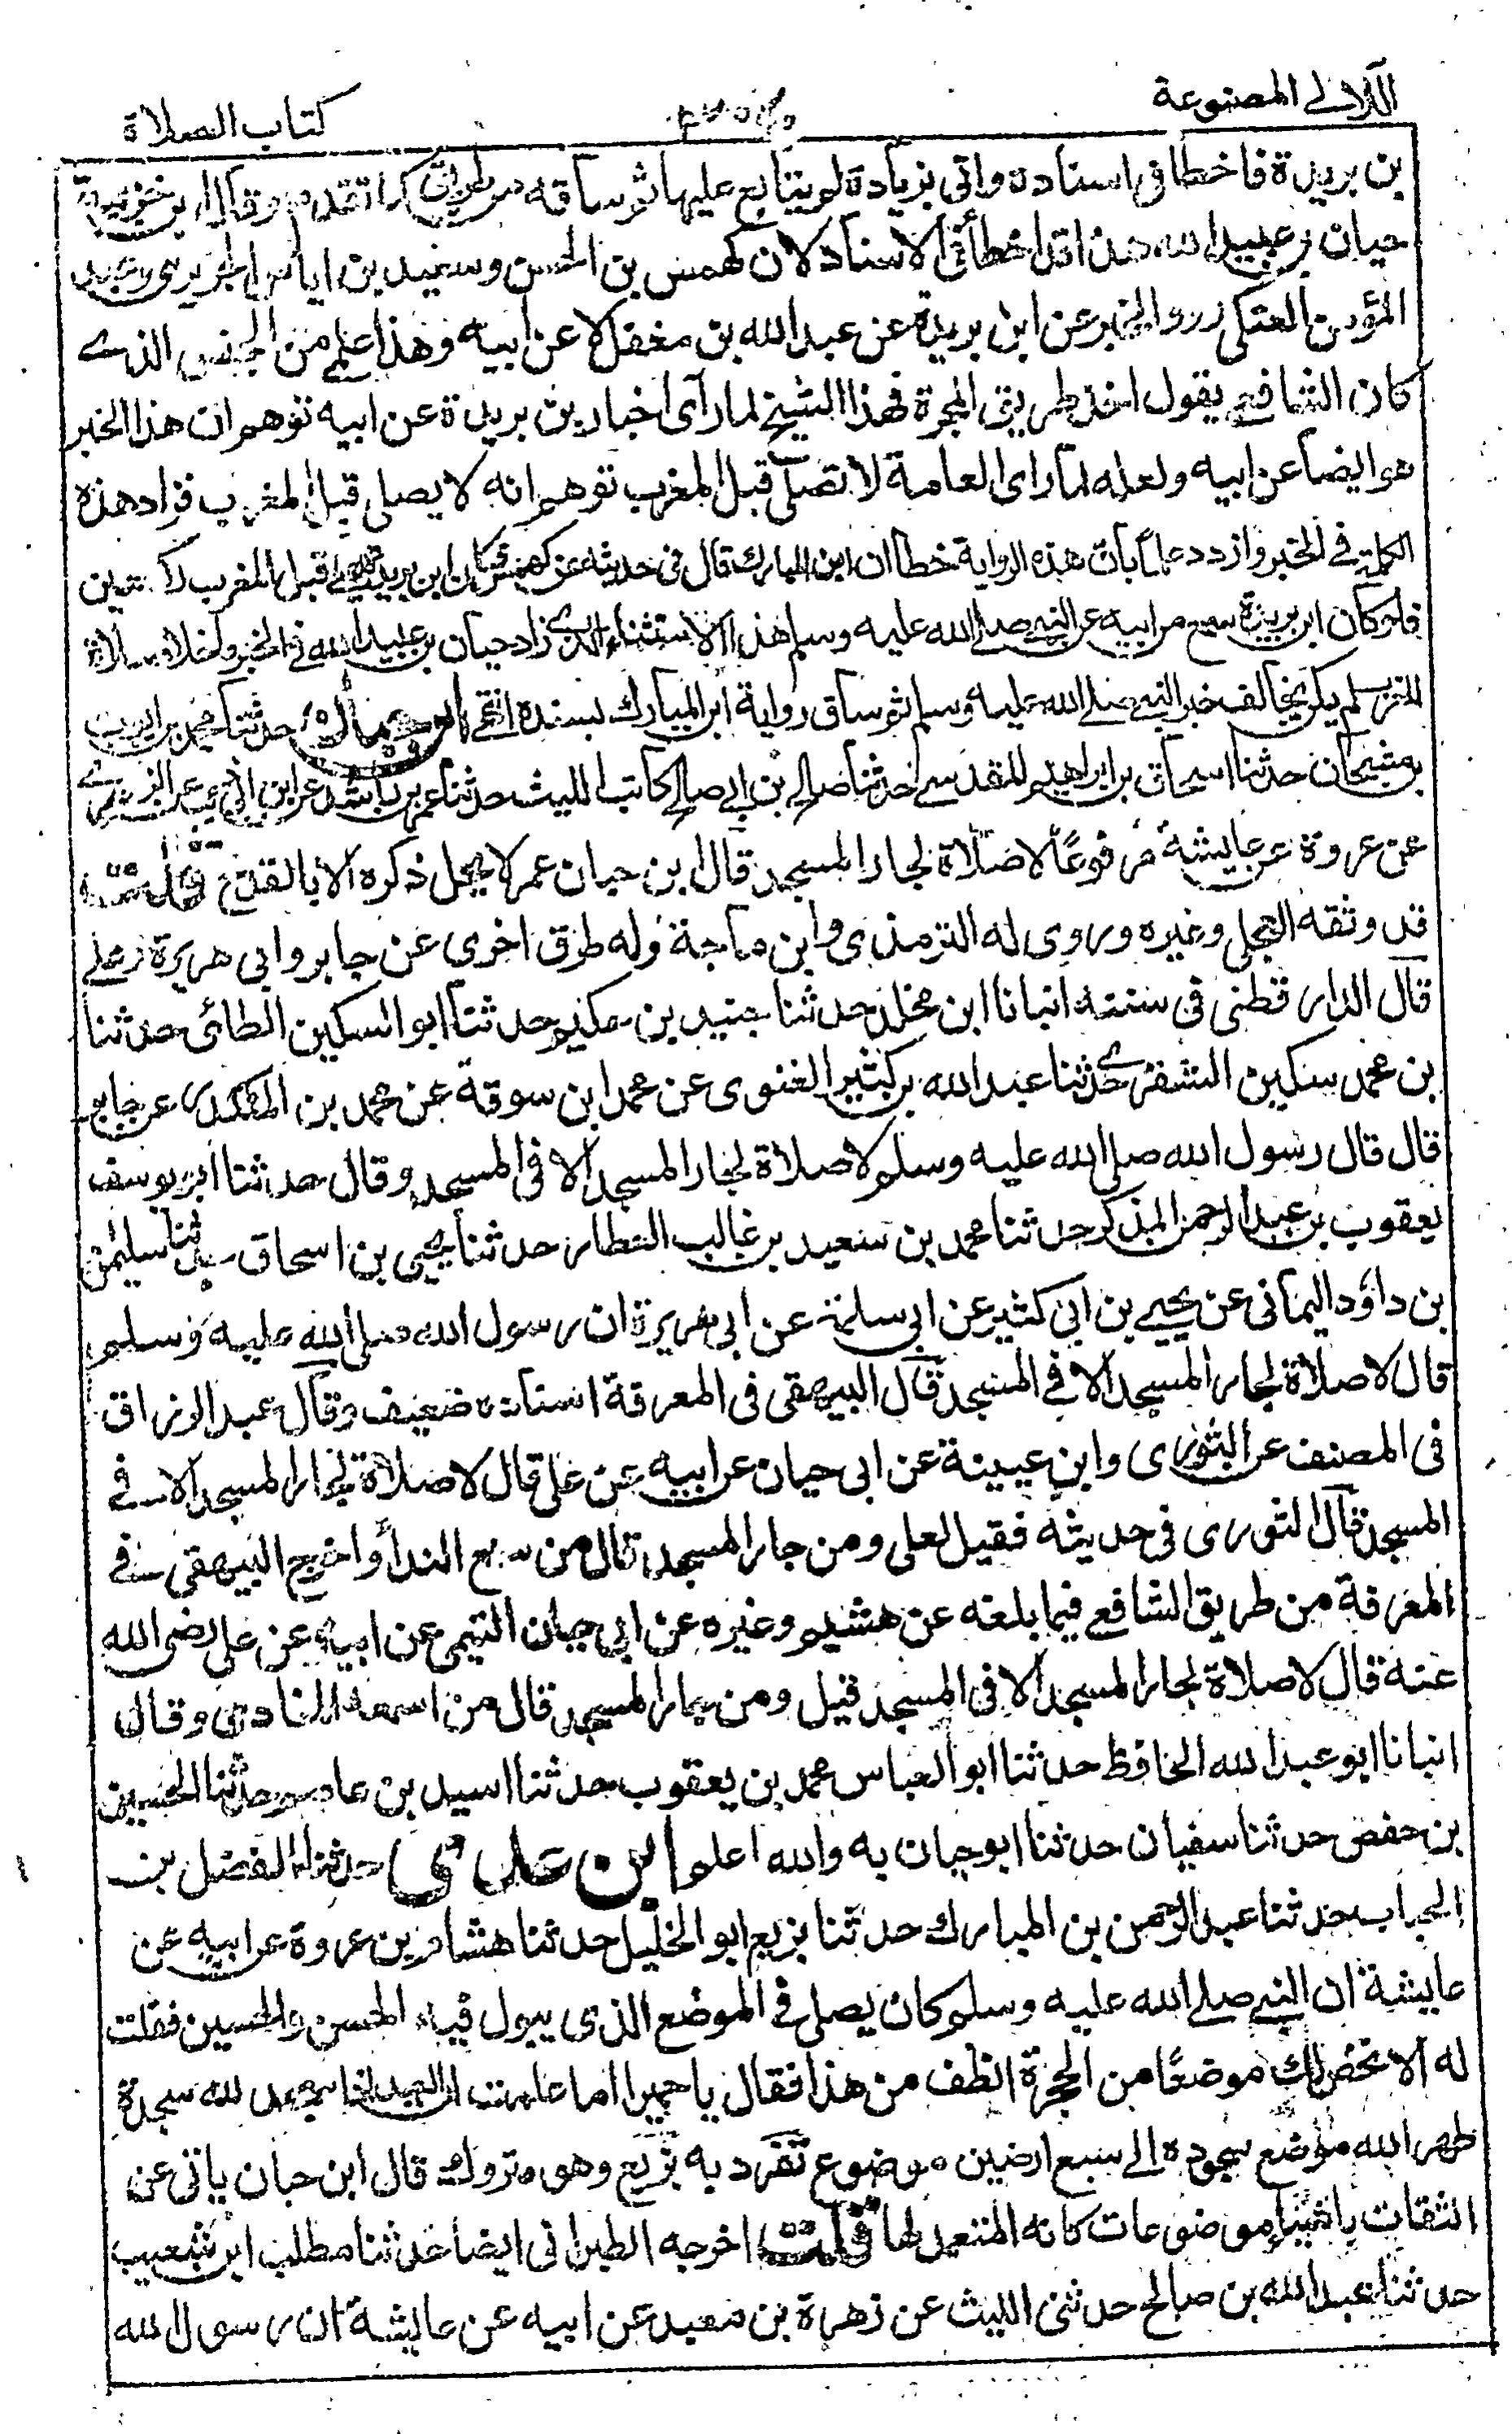 اللآلي المصنوعة
كتاب الصلاة
بن بريدة فاخطا فى اسناده واتى بزيادة لم يتابع عليها ثم ساقه من طريق كما تقدم وقال ابن خزيمة
حيان بن عبيد الله هذا قد اخطأ فى الاسناد لان كهمس بن الحسن وسعيد بن اياس الجريرى وعبد
المؤمن العتكى رووا الخبر عن ابن بريدة عن عبد الله بن مغفل لا عن ابيه وهذا علمى من الجنس الذے
كان الشافعے يقول اخذ طريق المجرة فهذا الشيخ لما رآى اخبار بن بريدة عن ابيه توهم ان هذا الخبر
هو ايضا عن ابيه ولعله لما راى العامة لا تصلى قبل المغرب توهم انه لا يصلى قبل المغرب فزاد هذه
الكلمة فے الخبر وازدد علما بان هذه الرواية خطا ان ابن المبارك قال فى حديثه عن كهمس فكان ابن بريدة يصلے قبل المغرب ركعتين
فلو كان ابن بريدة سمع من ابيه عن النبے صلے الله عليه وسلم هذا الاستثناء الذے زاد حيان بن عبيد الله فے الخبر ما خلا صلاة
المغرب لم يكن يخالف خبر النبے صلے الله عليه وسلم ثم ساق رواية ابن المبارك بسنده انتهے ابن حبان حدثنا محمد بن ايوب
بن مشيخان حدثنا اسحاق بن ابراهيم المقدسے حدثنا صالح بن ابے صالح كاتب الليث حدثنا عمر بن راشد عن ابن ابى ذئب عن الزهرے
عن عروة عن عايشة مرفوعًا لا صلاة لجار المسجد قال ابن حبان عمر لا يحل ذكره الا بالقدح قلت
قد وثقه العجلى وغيره وروى له الترمذى وابن ماجة وله طرق اخرى عن جابر وابى هريرة وعلے
قال الدارقطنى فى سننه انبانا ابن مخلد حدثنا جنيد بن حكيم حدثنا ابو السكين الطائى حدثنا
بن محمد سكين الشقرے حدثنا عبد الله بن كثير الغنوى عن محمد ابن سوقة عن محمد بن المنكدر عن جابر
قال قال رسول الله صلى الله عليه وسلم لا صلاة لجار المسجد الا فى المسجد وقال حدثنا ابو يوسف
يعقوب بن عبد الرحمن المذكر حدثنا محمد بن سعيد بن غالب العطار حدثنا يحيى بن اسحاق حدثنا سليمن
بن داود اليمانى عن يحيے بن ابى كثير عن ابى سلمة عن ابى هريرة ان رسول الله صلى الله عليه وسلم
قال لا صلاة لجار المسجد الا فے المسجد قال البيهقى فى المعرفة اسناده ضعيف وقال عبد الرزاق
فى المصنف عن الثورى وابن عيينة عن ابى حيان عن ابيه عن على قال لا صلاة لجار المسجد الا فے
المسجد قال الثورى فى حديثه فقيل لعلى ومن جار المسجد قال من سمع النداء واخرج البيهقى فے
المعرفة من طريق الشافعے فيما بلغه عن هشيم وغيره عن ابى حيان التيمى عن ابيه عن على رضى الله
عنه قال لا صلاة لجار المسجد الا فى المسجد قيل ومن جار المسجد قال من اسمعه المنادى وقال
انبانا ابو عبد الله الحافظ حدثنا ابو العباس محمد بن يعقوب حدثنا اسيد بن عاصم حدثنا الحسين
بن حفص حدثنا سفيان حدثنا ابو حيان به والله اعلم ابن عدى حدثنا الفضل بن
الحباب حدثنا عبد الرحمن بن المبارك حدثنا بزيع ابو الخليل حدثنا هشام بن عروة عن ابيه عن
عايشة ان النبے صلے الله عليه وسلم كان يصلى فے الموضع الذى يبول فيه الحسن والحسين فقلت
له الا تخص لك موضعًا من الحجرة انظف من هذا فقال يا حميرا اما علمت ان العبد اذا سجد لله سجدة
طهر الله موضع سجوده الے سبع ارضين موضوع تفرد به بزيع وهو متروك قال ابن حبان ياتى عن
الثقات باشيا موضوعات كانه المتعمد لها قلت اخرجه الطبرانى ايضا حدثنا مطلب ابن شعيب
حدثنا عبد الله بن صالح حدثنى الليث عن زهرة بن معبد عن ابيه عن عايشة ان رسول الله